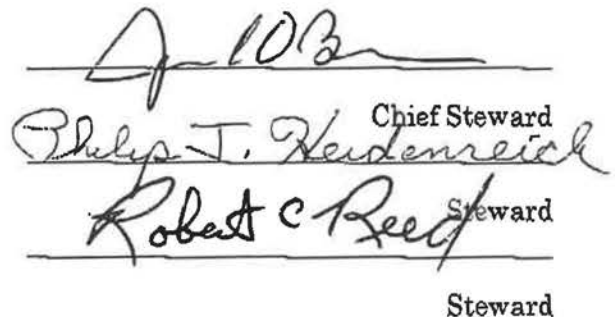 Chief Steward
Philip J. Heidenreich
Steward
Robert C Reed
Steward